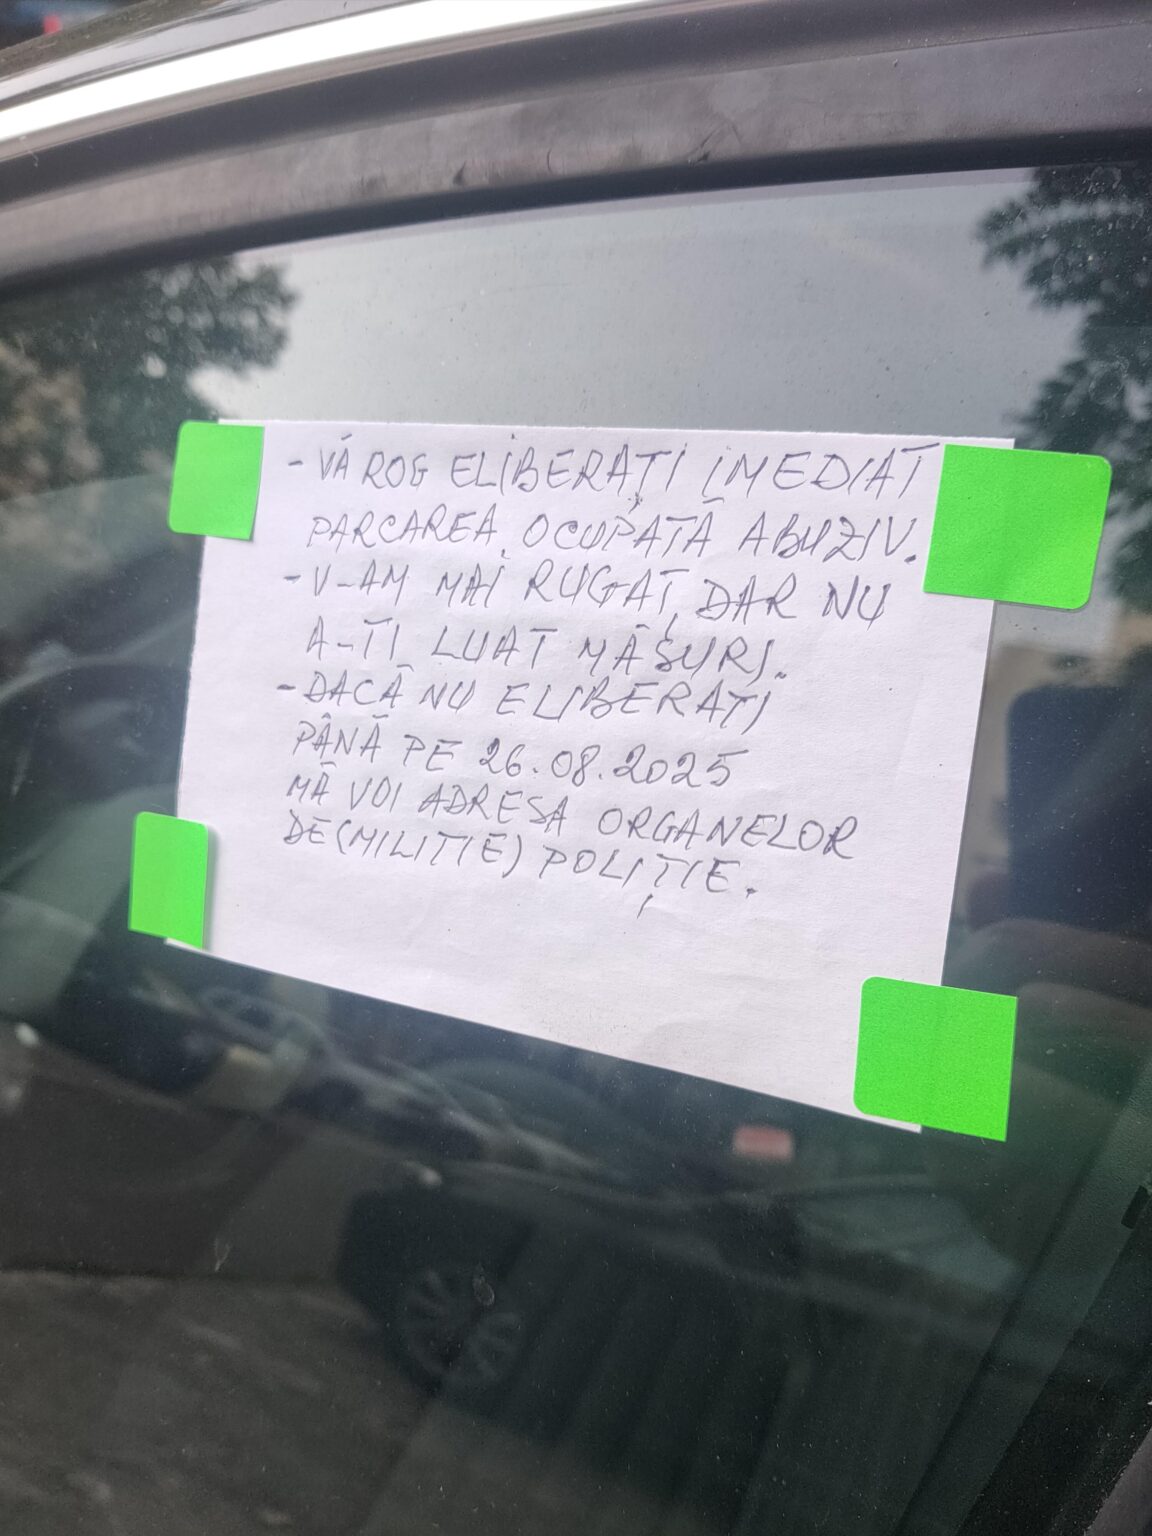 - VĂ ROG ELIBERAȚI IMEDIAT
PARCAREA OCUPATĂ ABUZIV.
- V-AM MAI RUGAT, DAR NU
A-TI LUAT MĂSURI.
- DACĂ NU ELIBERATI
PÂNĂ PE 26.08.2025
MĂ VOI ADRESA ORGANELOR
DE (MILITIE) POLIȚIE.